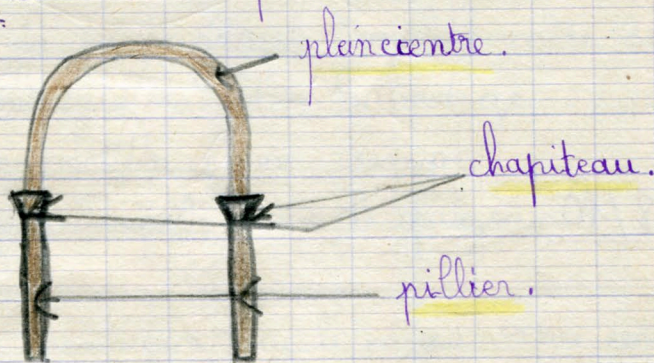 pleincientre.
chapiteau.
pillier.